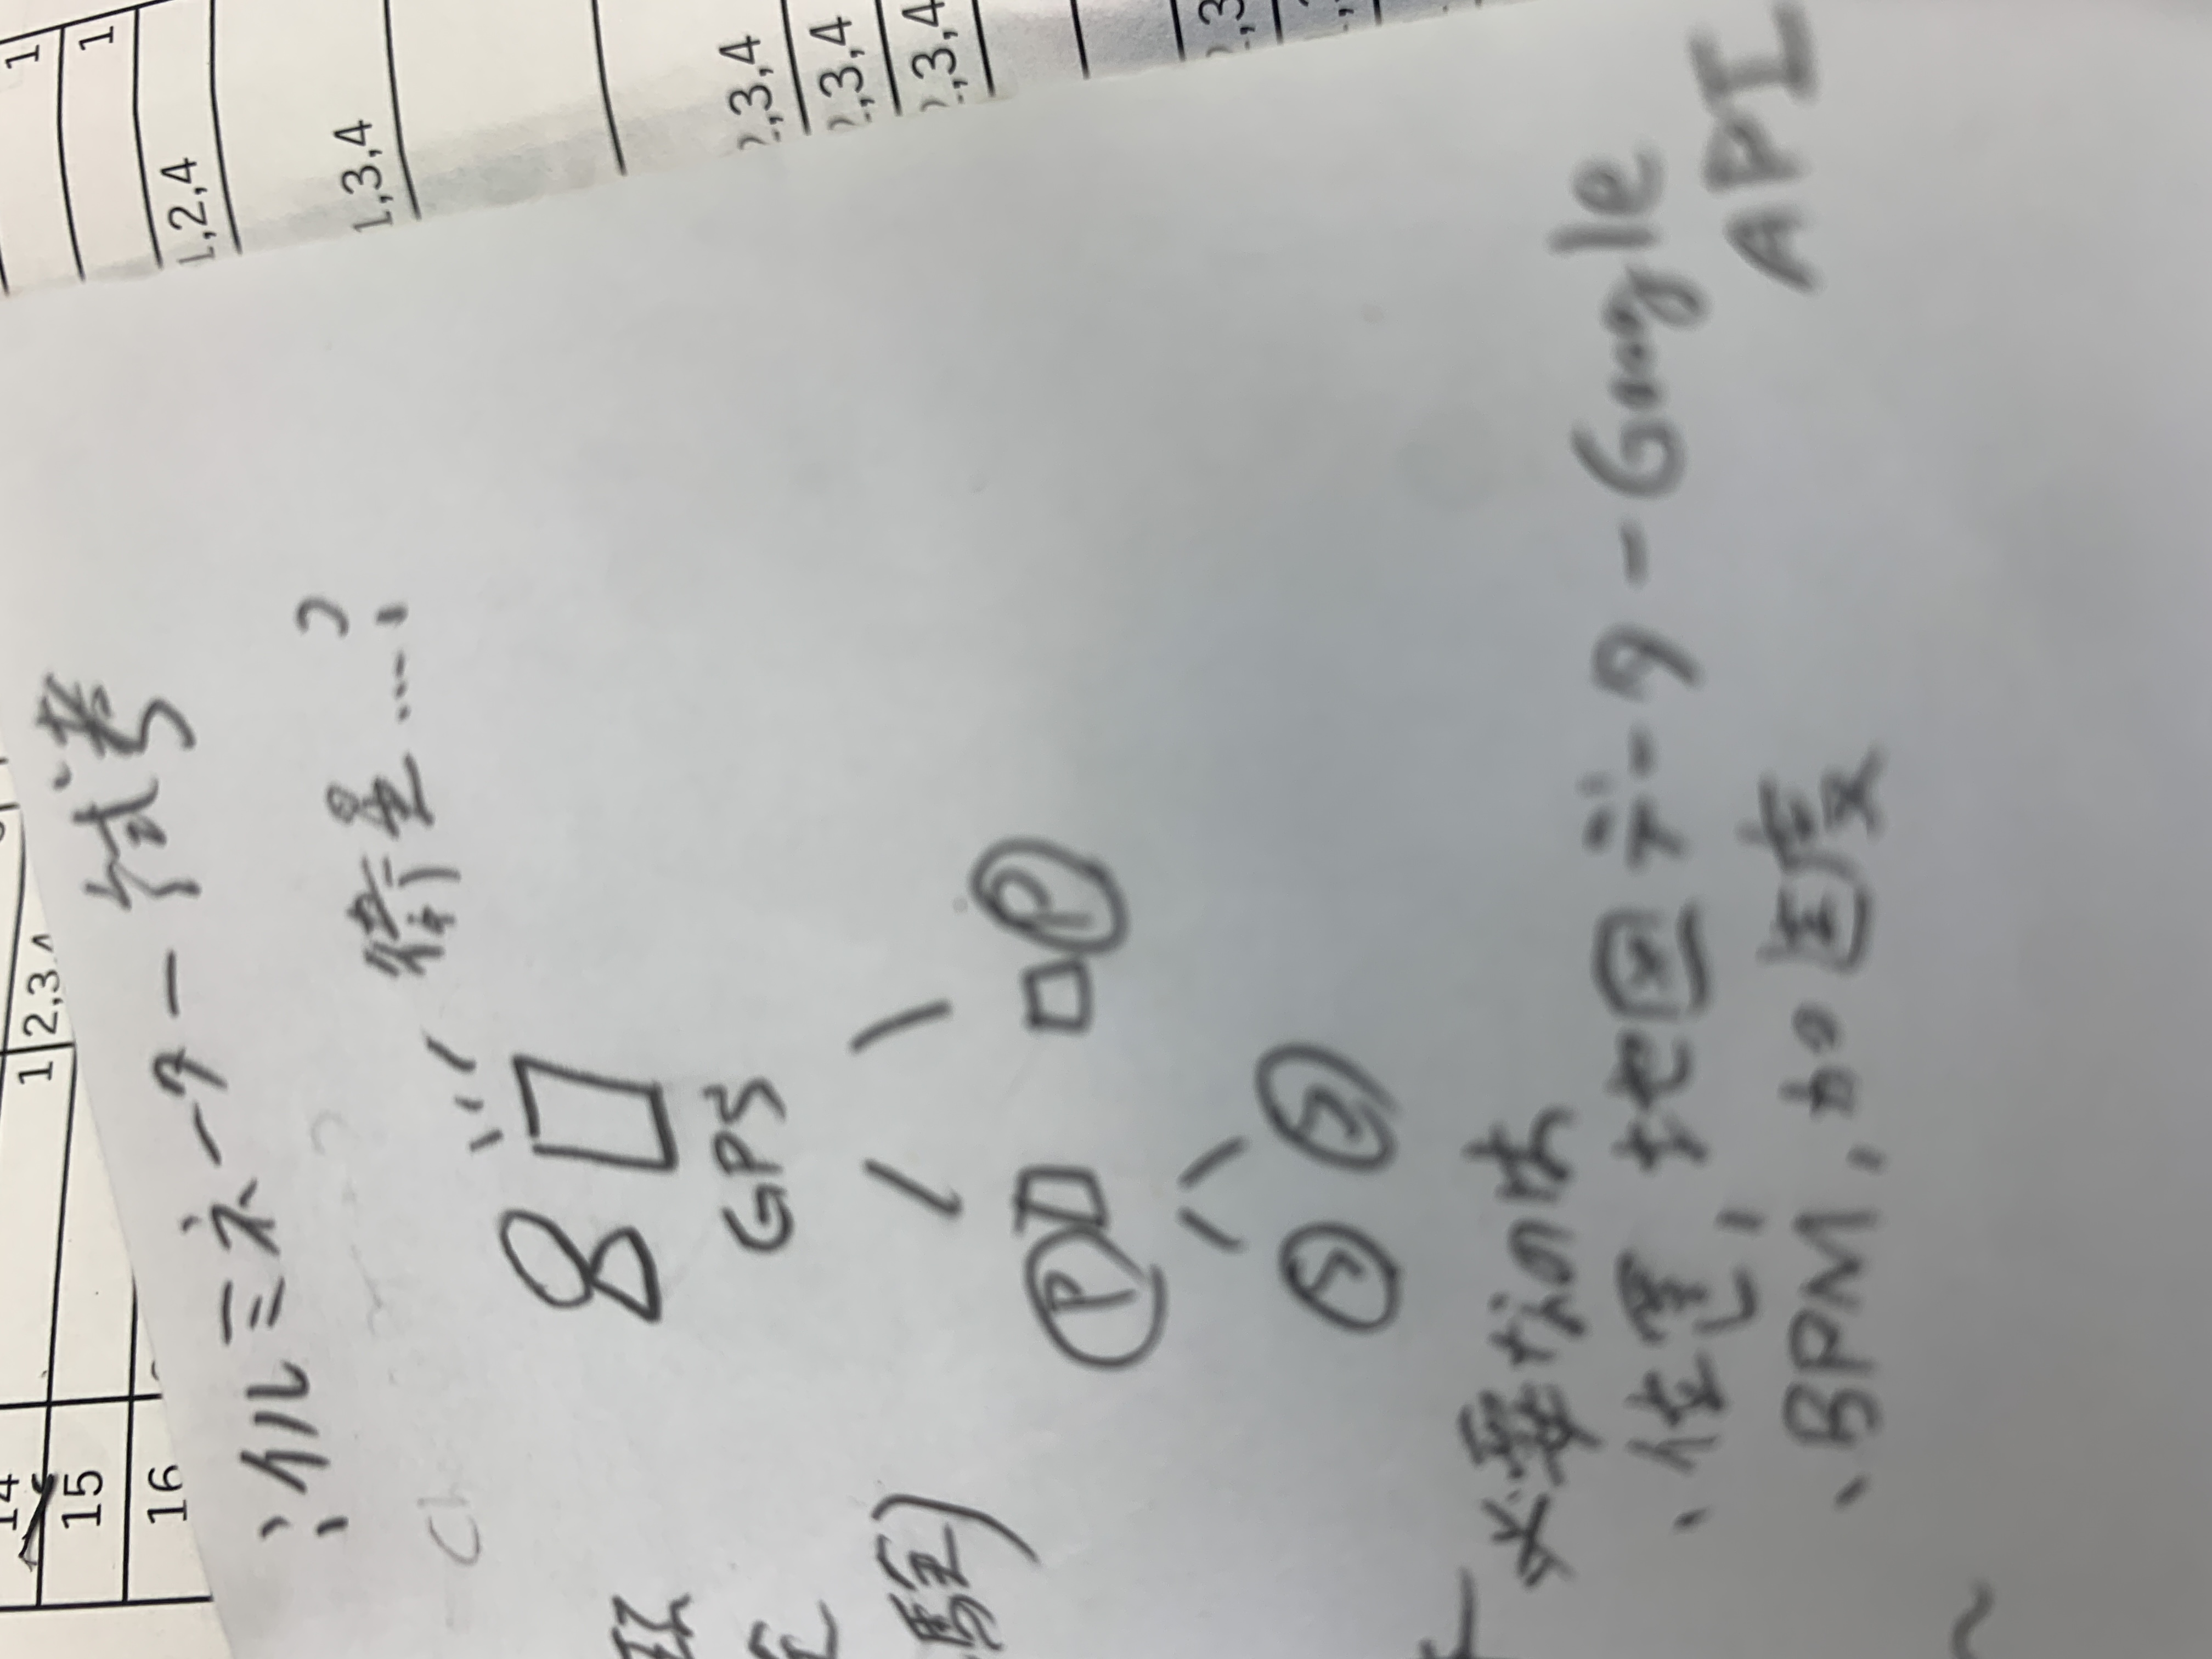 14
1 2,3
15
16
1
1
1,2,4
1,3,4
2,3,4
2,3,4
2,3,4
イルミネーター試考
衛星…?
GPS
P P
S S
験)
必要なのは
、位置, 地図データ-Google
API
、BPM, 加速度